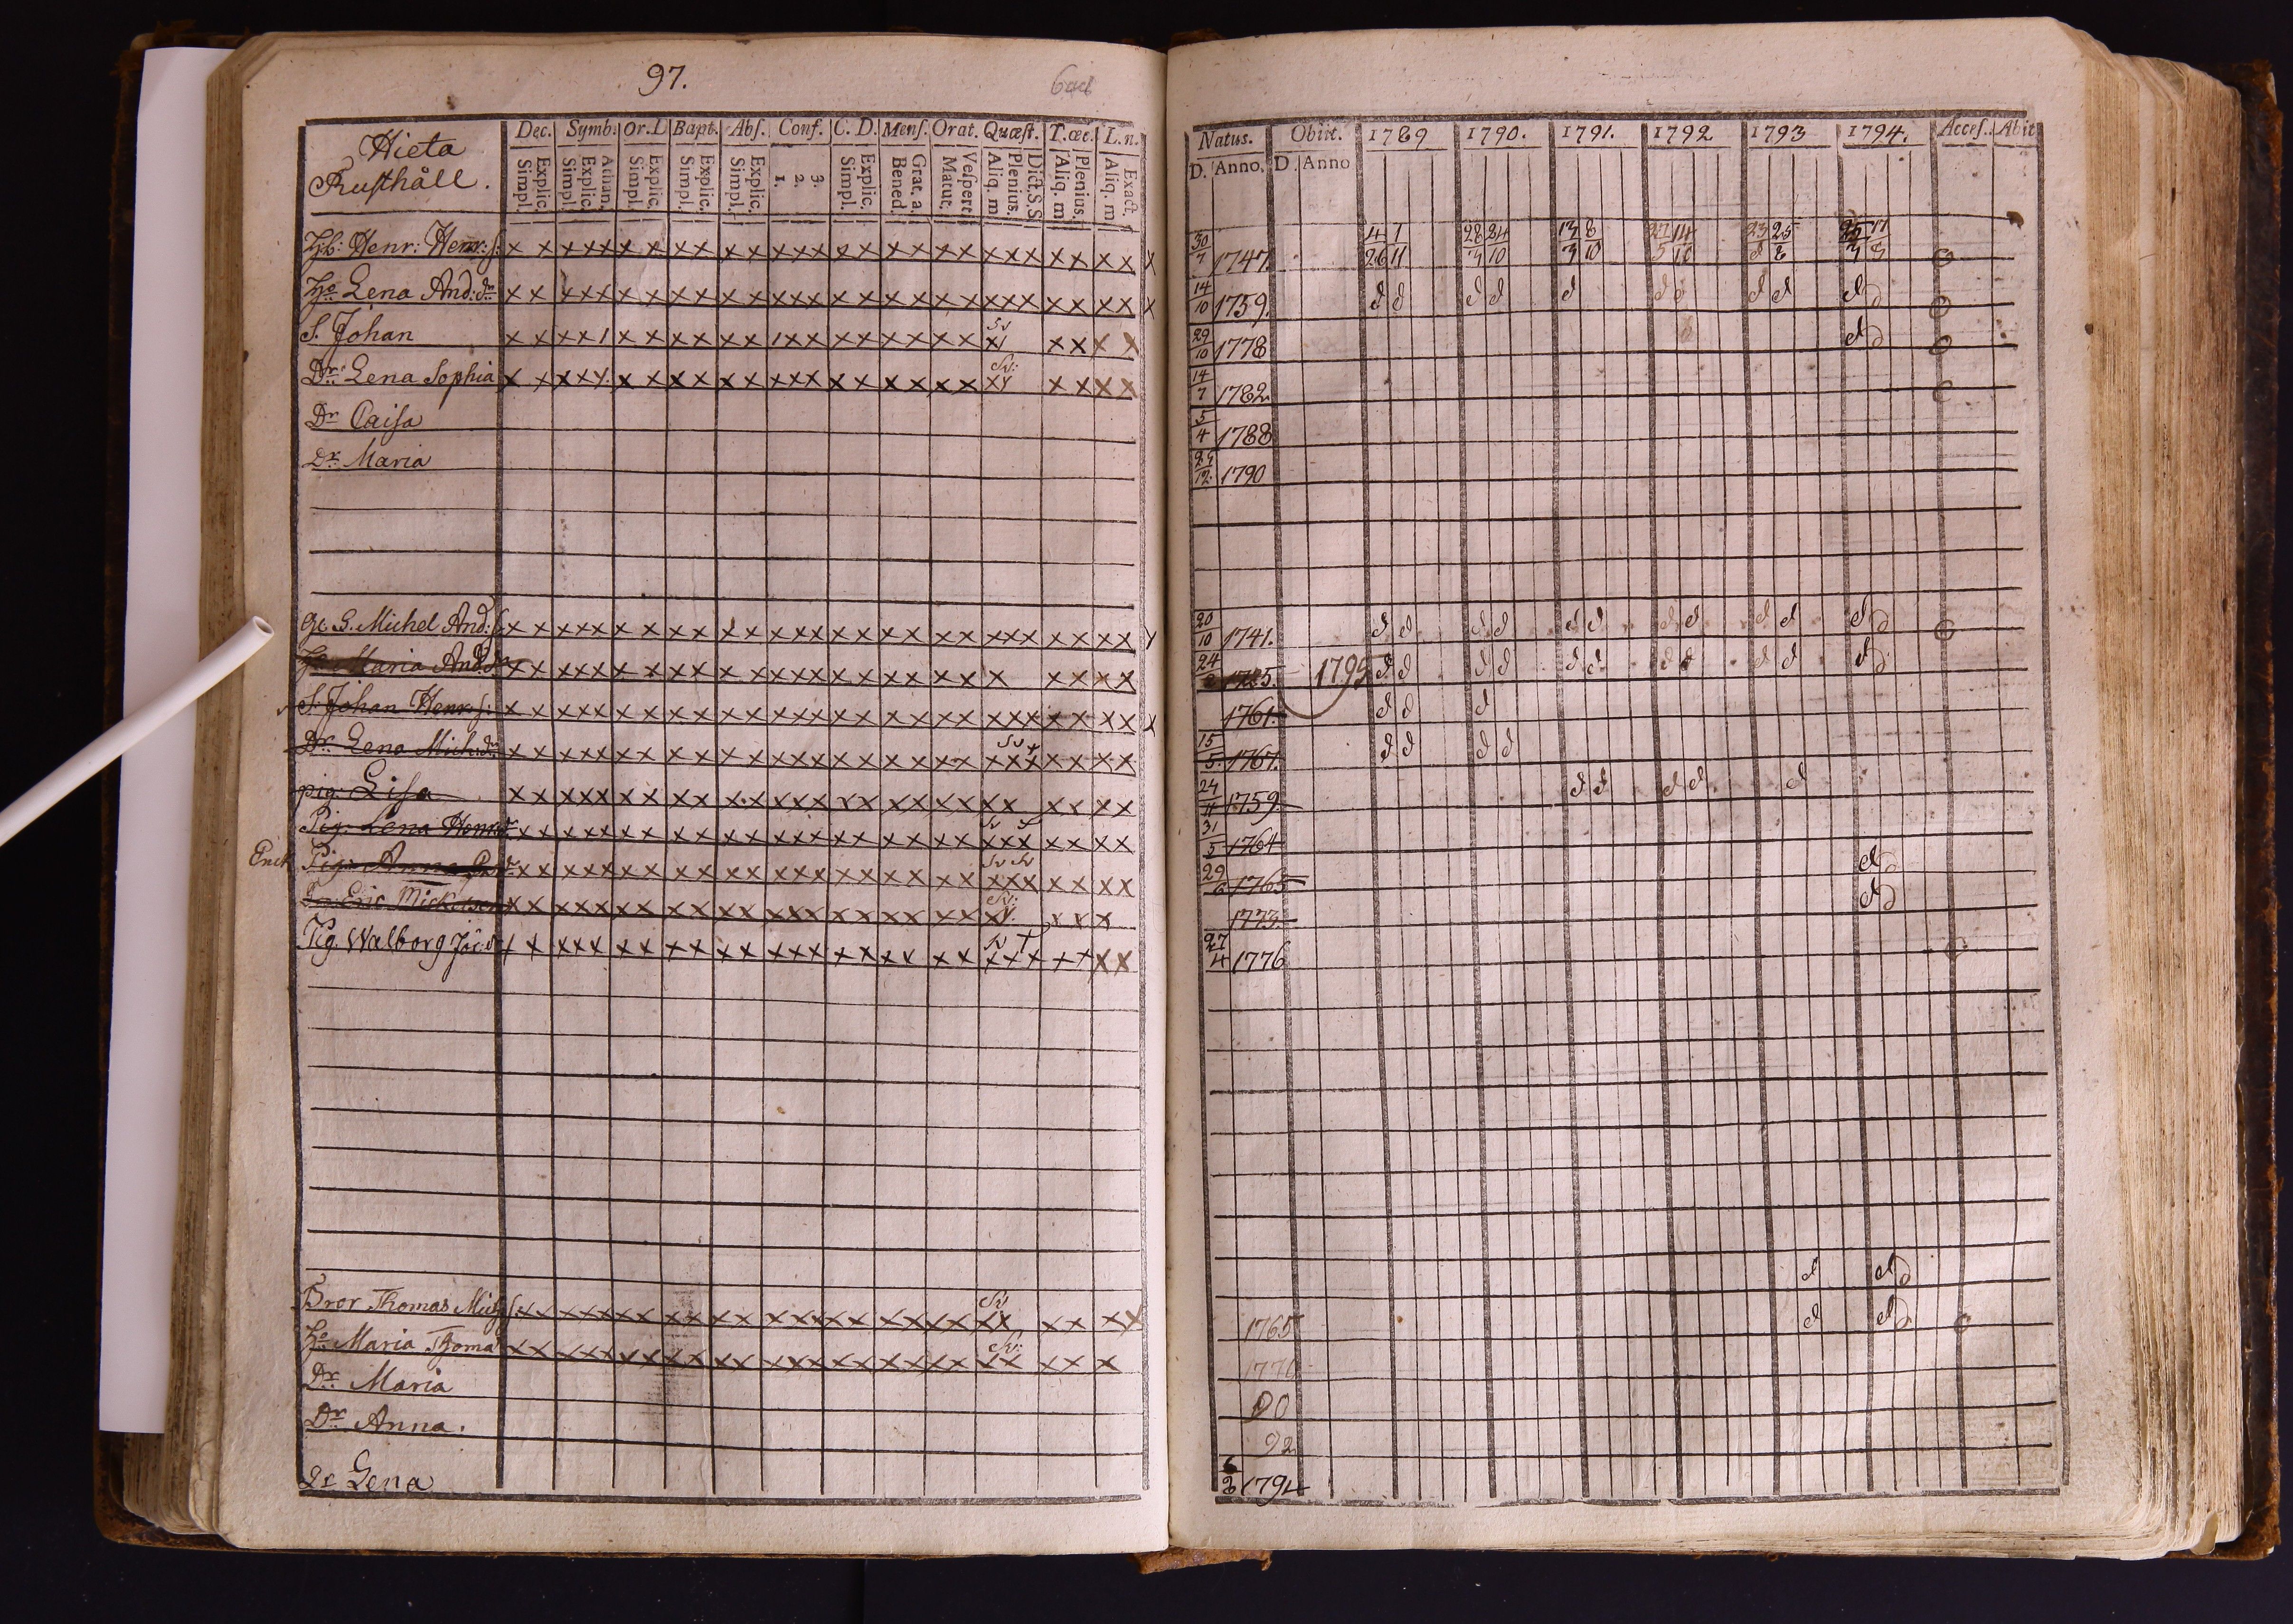 97.
Hieta
Rusthåll.
Dec. Symb. Or. D Bapt. Abs. Conf. C. D. Mens. Orat. Quæst. T. æt. L. n.
Simpl. Explic. Simpl. Explic. Athan. Simpl. Explic. Simpl. Explic. Simpl. Explic. 1. 2. 3. Simpl. Explic. Bened. Grat. a. Matut. Vespert. Aliq. m Plenius. Dict. S. S. Aliq. m Plenius. Aliq. m Exact.
Hb: Henr: Henr: s:
Ho Lena And: dr
S. Johan
Dr. Lena Sophia
Dr Caisa
Dr Maria
S. Michel And: s
Ho Maria And: dr
S. Johan Henr: s:
Dr. Lena Mich: dr
pig: Lisa
Pig: Lena Henr: dr
Enck Pig: Anna
Eric Mickelson
Pig. Walborg Jac: d
Bror Thomas Mich s
Ho Maria Thoma
Dr Maria
Dr Anna.
Dr Lena
Natus. Obiit. 1789 1790. 1791. 1792 1793 1794. Acces. Abit
D. Anno. D. Anno
30/7 1747. 4/26 1/11 28/3 24/10 13/3 8/10 27/5 14/10 23 25 25/3 17
14/10 1759.
29/10 1778
14/7 1782
5/4 1788
29/12 1790
20/10 1741.
24 1725. 1795
1761.
15/5 1767.
24/11 1759.
31/5 1764
29/6 1765
1773.
27/4 1776
1765
1770
90
92
6/3 1794